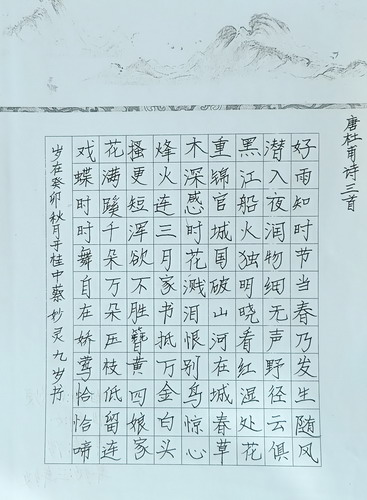 唐杜甫诗三首
好雨知时节当春乃发生随风
潜入夜润物细无声野径云俱
黑江船火独明晓看红湿处花
重锦官城国破山河在城春草
木深感时花溅泪恨别鸟惊心
烽火连三月家书抵万金白头
搔更短浑欲不胜簪黄四娘家
花满蹊千朵万朵压枝低留连
戏蝶时时舞自在娇莺恰恰啼
岁在癸卯秋月于桂中蔡妙灵九岁书